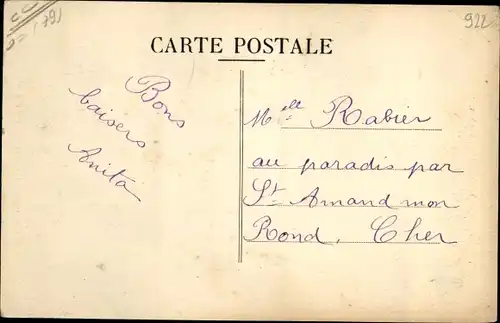 922
CARTE POSTALE
Bons
baisers
Anita
Melle Rabier
au paradis par
St Amand mon
Rond, Cher